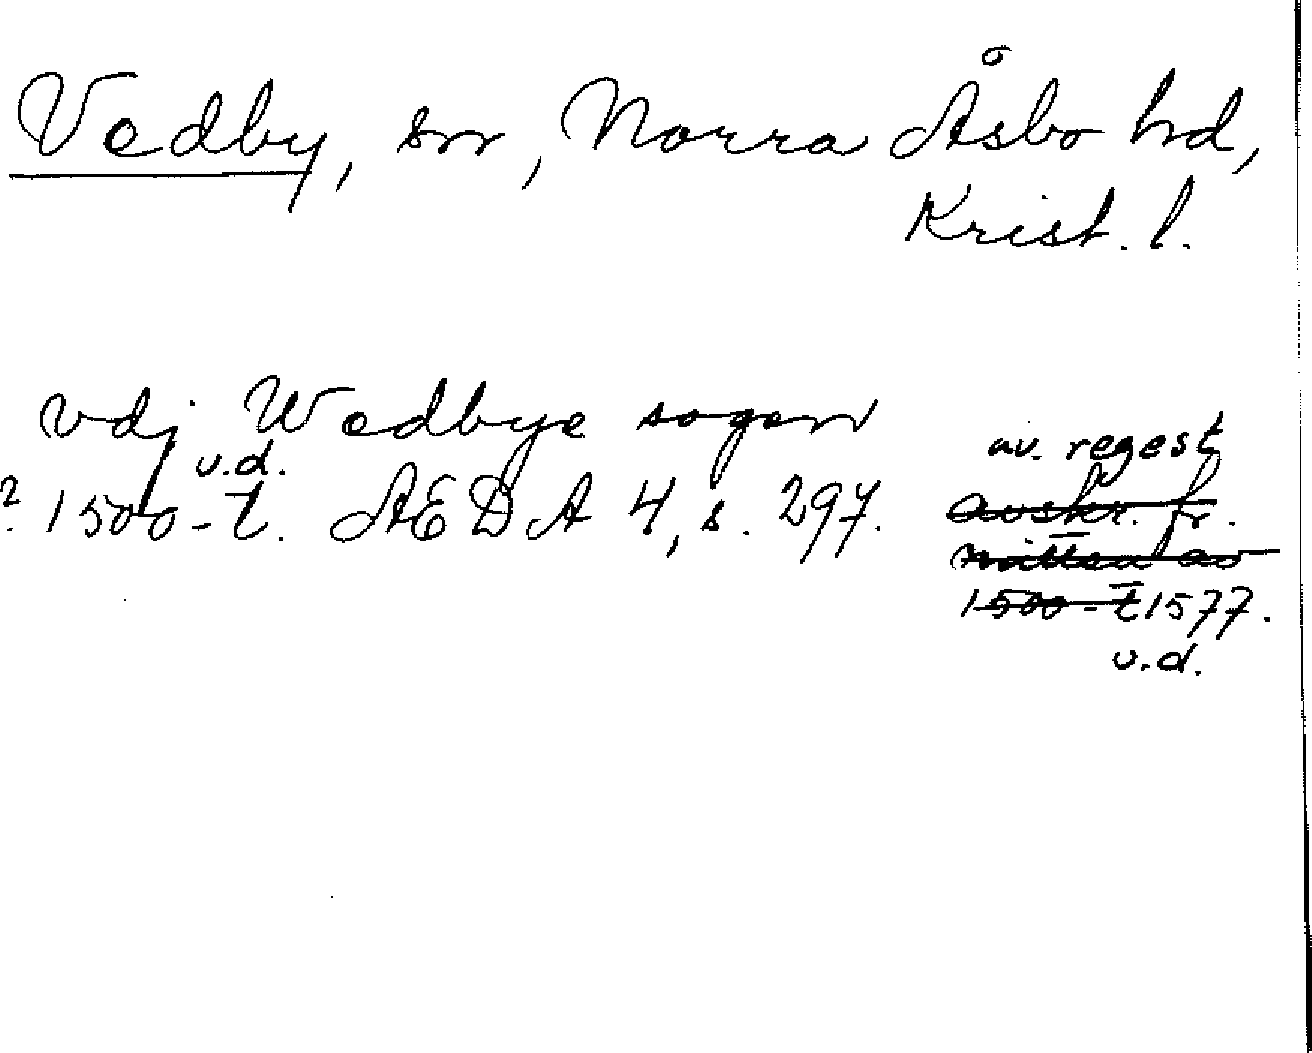 Vedby, sn, Norra Åsbo hd,
Krist. l.
vdj Wedbye sogen
u.d.
? 1500-t. AEDA 4, s. 297.
av. regest
avskr. fr.
mitten av
1500-t 1577.
u.d.